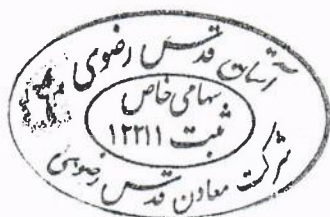 آستان قدس رضوی
سهامی خاص
ثبت ۱۲۲۱۱
شرکت معادن قدس رضوی